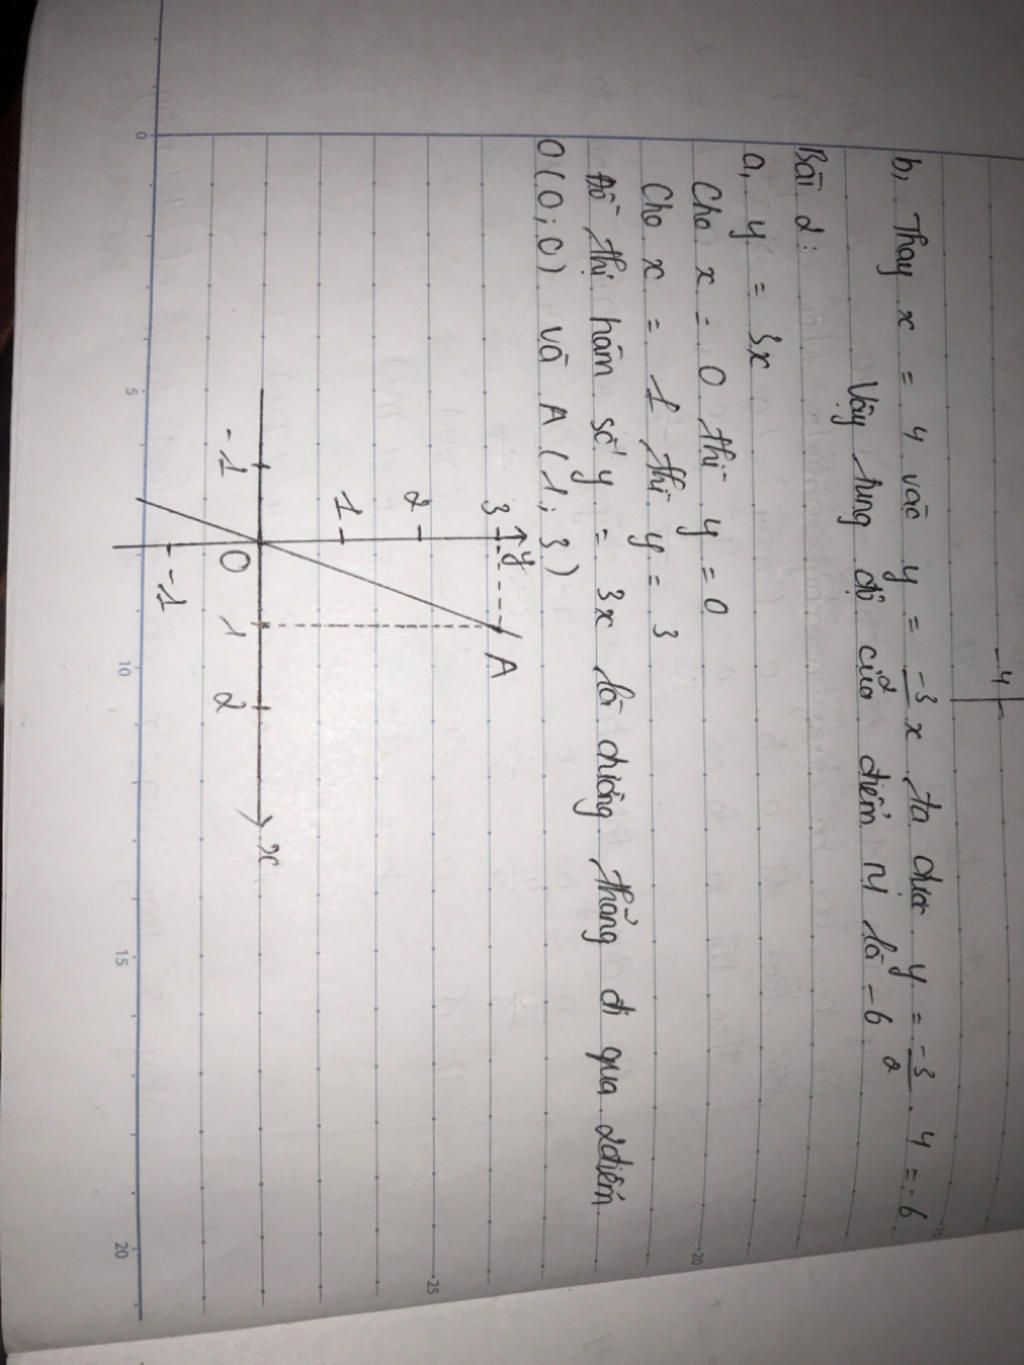 -4
b, Thay x = 4 vào y = -3/2 x ta được y = -3/2 . 4 = -6
Vậy tung độ của điểm N là -6
Bài 2:
a, y = 3x
Cho x = 0 thì y = 0
Cho x = 1 thì y = 3
Đồ thị hàm số y = 3x là đường thẳng đi qua 2 điểm
O (0; 0) và A (1; 3)
y
3
A
2
1
-1 O 1 2 x
-1
0 5 10 15 20
20
25